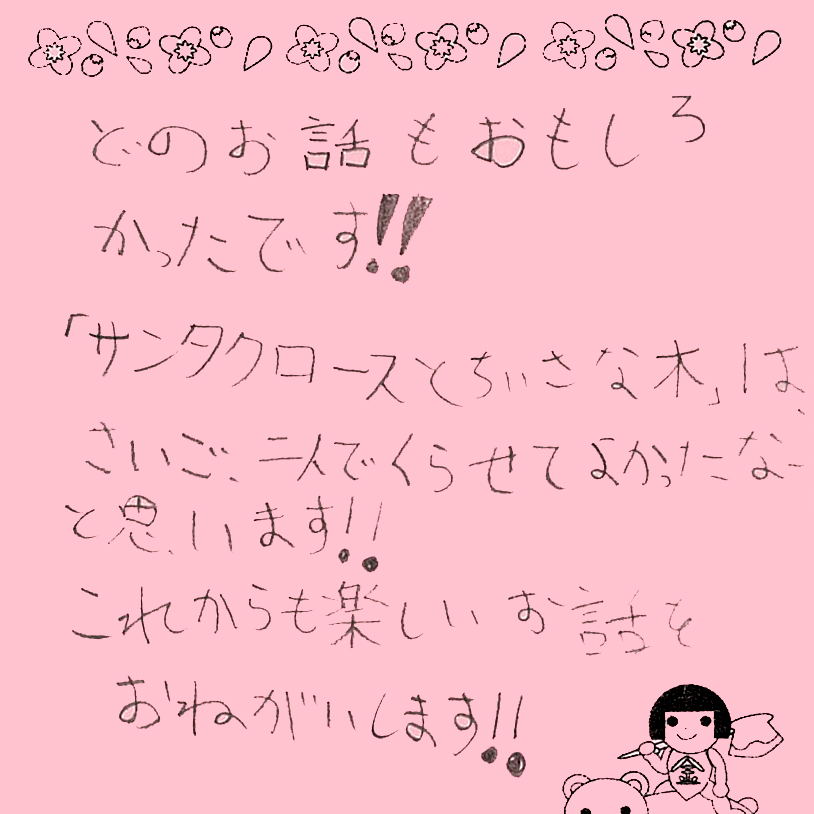 どのお話もおもしろ
かったです!!
「サンタクロースとちいさな木」は、
さいご、二人でくらせてよかったなー
と思います!!
これからも楽しいお話を
おねがいします!!
金